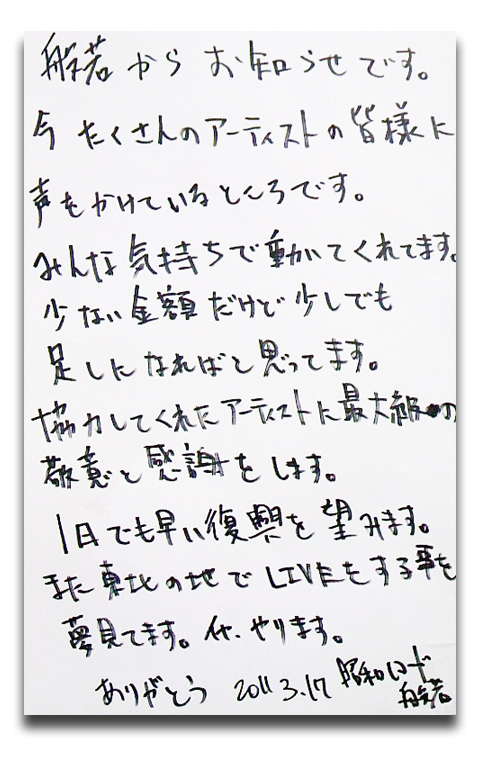 般若からお知らせです。
今たくさんのアーティストの皆様に
声をかけているところです。
みんな気持ちで動いてくれてます。
少ない金額だけど少しでも
足しになればと思ってます。
協力してくれたアーティストに最大級の
敬意と感謝をします。
1日でも早い復興を望みます。
また東北の地でLIVEをする事を
夢見てます。イヤ、やります。
ありがとう 2011 3.17 昭和レコード
般若